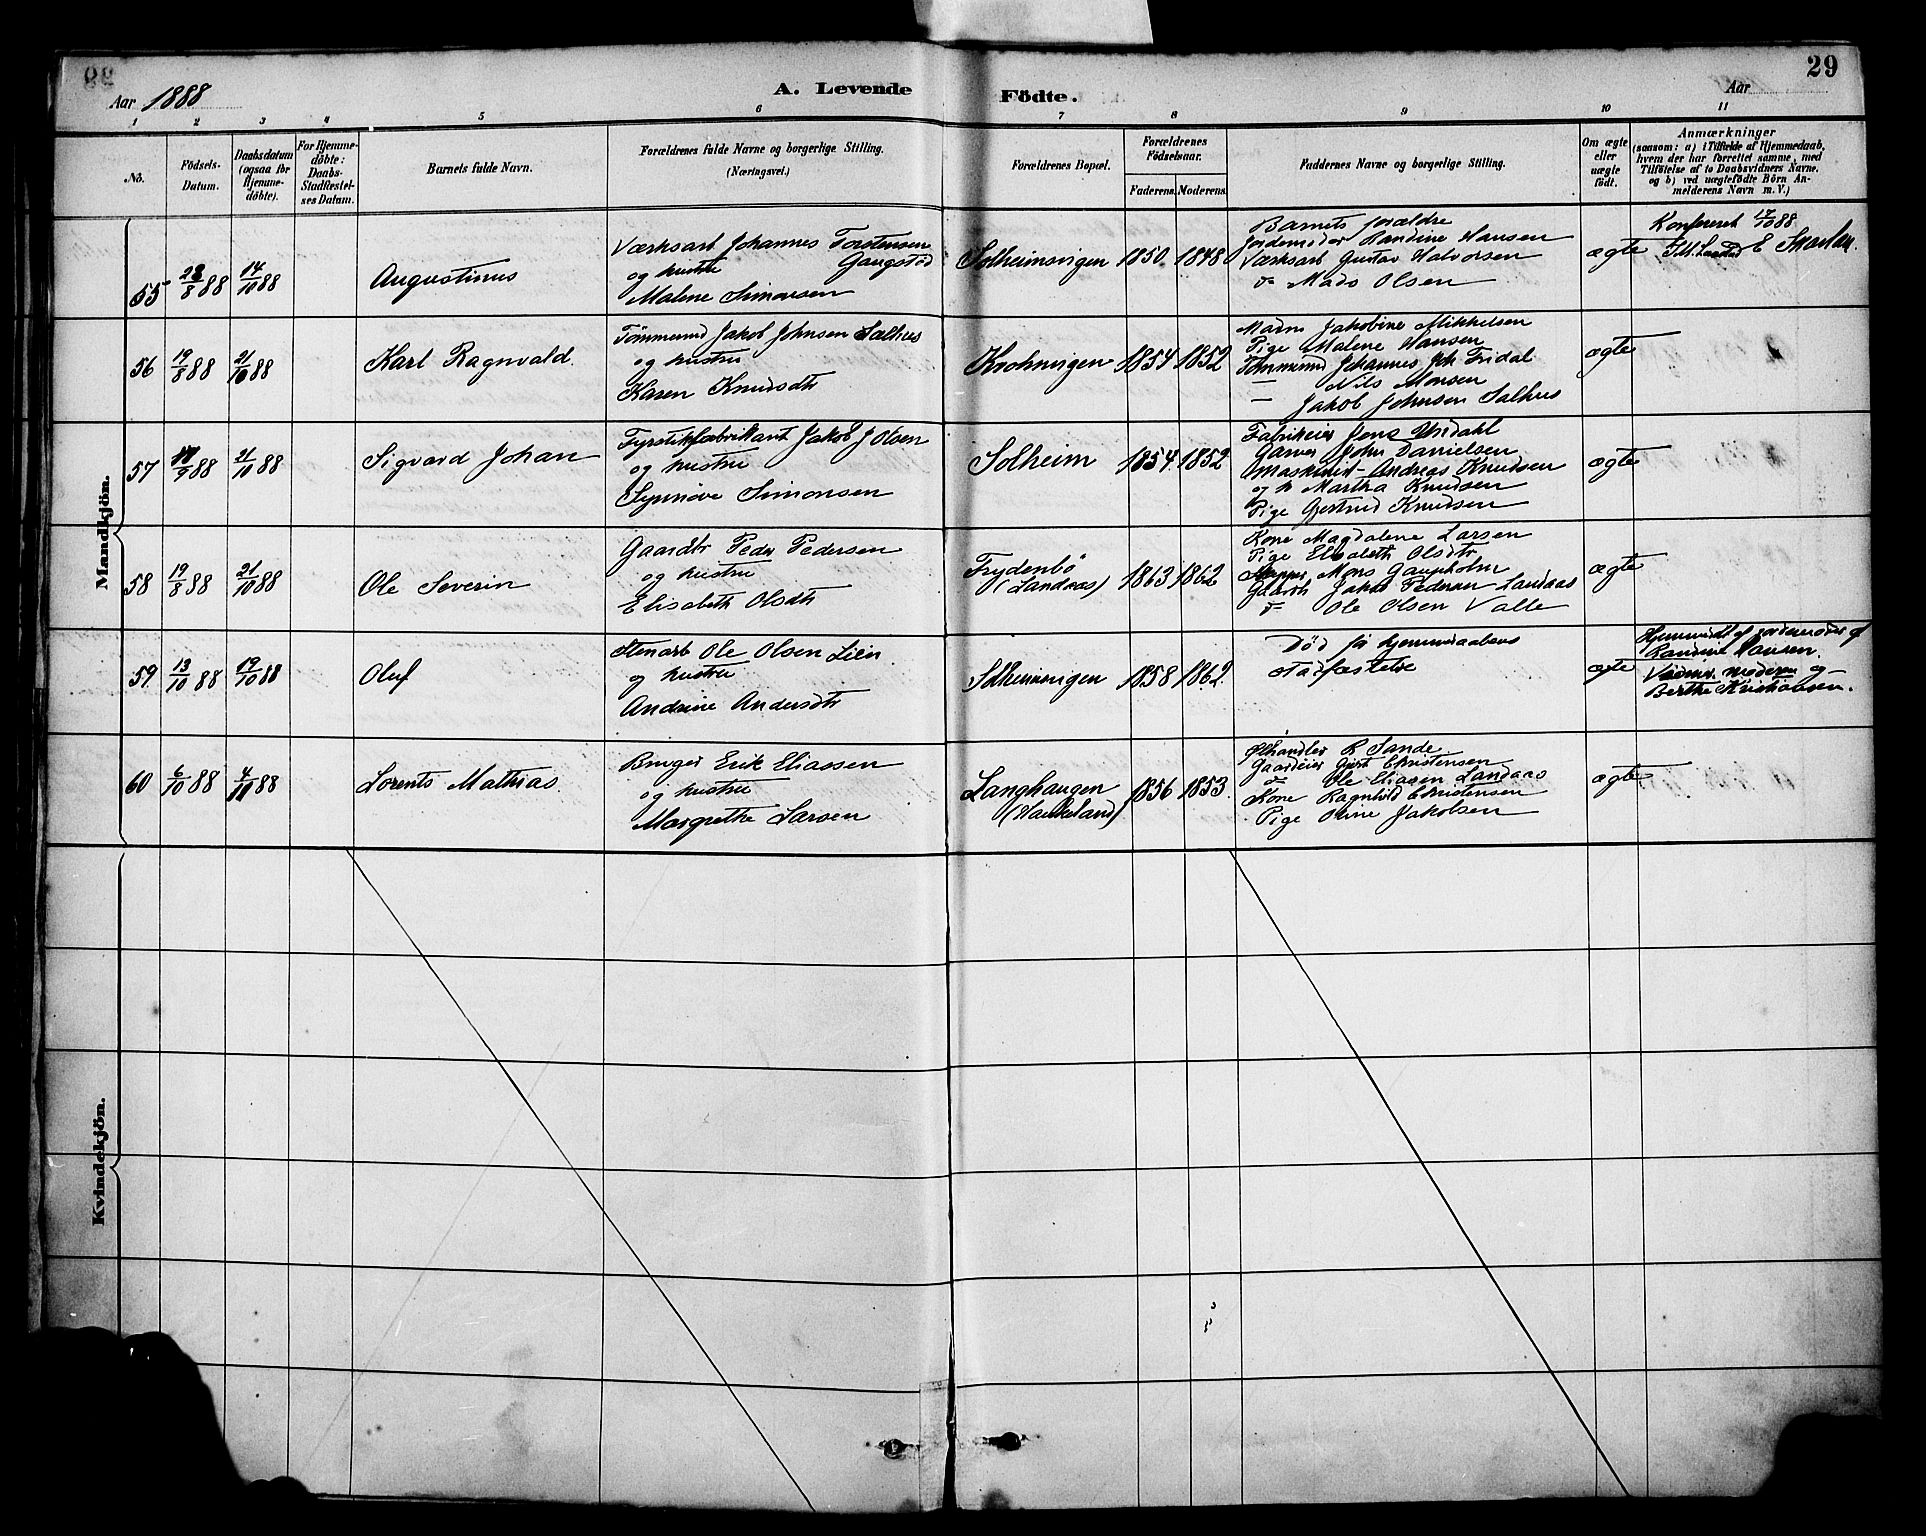 29
Aar 1888
A. Levende Födte.
Aar
1 2 3 4 5 6 7 8 9 10 11
No.
Födsels-Datum.
Daabsdatum (ogsaa for Hjemmedöbte).
For Hjemmedöbte: Daabs-Stadfæstelses Datum.
Barnets fulde Navn.
Forældrenes fulde Navne og borgerlige Stilling.
(Næringsvei.)
Forældrenes Bopæl.
Forældrenes Födselsaar.
Faderens. Moderens.
Faddernes Navne og borgerlige Stilling.
Om ægte eller uægte födt.
Anmærkninger
(saasom: a) i Tilfælde af Hjemmedaab,
hvem der har forrettet samme, med
Tilföielse af to Daabsvidners Navne.
og b) ved uægtefödte Börn An-
melderens Navn m. V.)
Mandkjön.
55 28/8 88 14/10 88 Augustinus
Værksarb Johannes Torstensen
Gangstöd
og hustru
Malene Simonsen
Solheimsvigen 1850. 1848
Barnets forældre
Jordemoder Randine Hansen
Værksarb Gustav Halvorsen
do Mads Olsen
ægte
Konfereret 17/10 88
56 19/8 88 21/10 88 Karl Ragnvald.
Tömmermd Jakob Johnsen Salhus
og hustru
Karen Knudsdtr
Krohnvigen 1854 1852
Madm Jakobine Mikkelsen
Pige Malene Hansen
Tömmermd Johannes Joh. Fridal
— Nils Monsen
— Jakob Johnsen Salhus
ægte
57 17/9 88 21/10 88 Sigvard Johan
Fyrstikfabrikant Jakob J Olsen
og hustru
Synnöve Simonsen
Solheim 1854. 1852
Fabrikeier Jens Undahl
Garver John Danielsen
Maskinist Andreas Knudsen
og h Martha Knudsen
Pige Gjertrud Knudsen
ægte
58 19/8 88 21/10 88 Ole Severin
Gaardbr Peder Pedersen
og hustru
Elisabeth Olsdtr
Frydenbö
(Landaas)
1863 1862
Kone Magdalene Larsen
Pige Elisabeth Olsdtr
Skipper Mons Gaupholm
Gaardbr Jakob Pedersen Landaas
do Ole Olsen Valle
ægte
59 13/10 88 19/10 88 Oluf
Stenarb Ole Olsen Lien
og hustru
Andrine Andersdtr
Solheimsvigen 1858 1862
Död för hjemmedaabens
stadfæstelse
ægte
Hjemmedöbt af jordemoder
Randine Hansen.
Vidner: moderen og
Berthe Kristiansen.
60 6/10 88 4/11 88 Lorents Mathias.
Bruger Erik Eliassen
og hustru
Margrethe Larsen
Langhaugen
(Haukeland)
1856 1853.
Ölhandler R Sande
Gaardeier Gjert Christensen
do Ole Eliasen Landaas
Kone Ragnhild Christensen
Pige Oline Jakobsen
ægte
Kvindekjön.